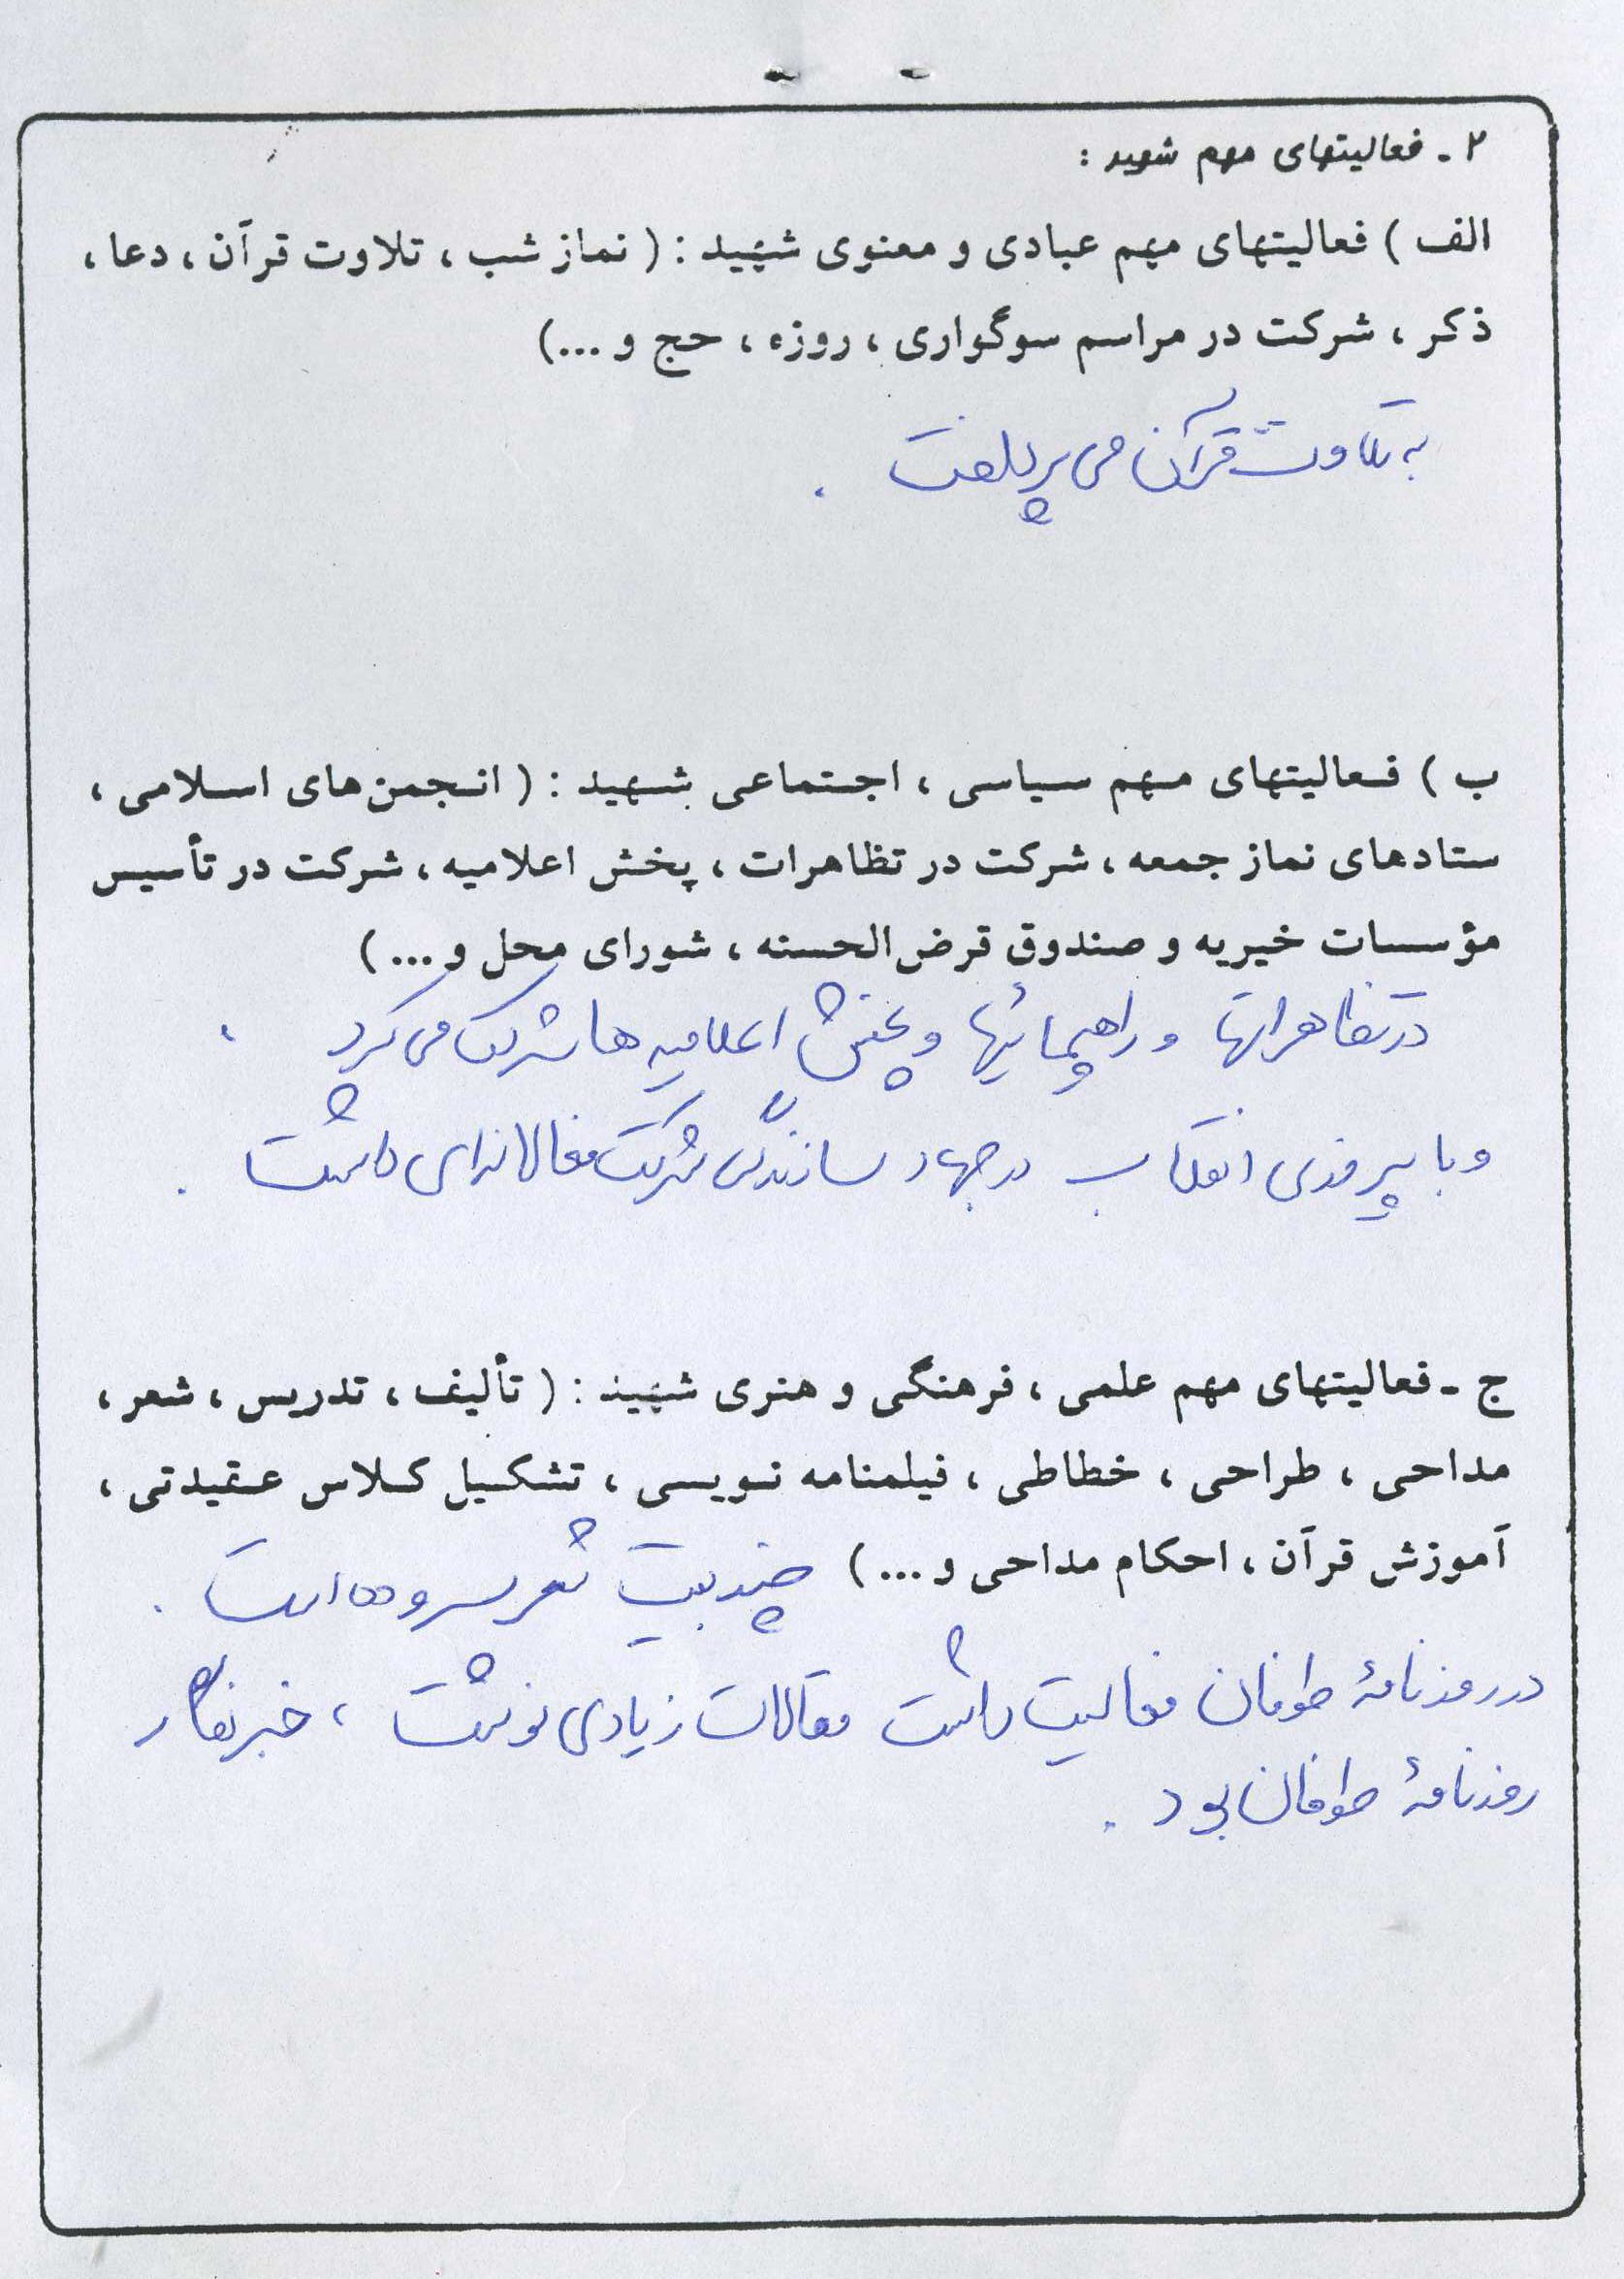 ۲ - فعالیتهای مهم شهید :
الف ) فعالیتهای مهم عبادی و معنوی شهید : ( نماز شب ، تلاوت قرآن ، دعا ،
ذکر ، شرکت در مراسم سوگواری ، روزه ، حج و ...)
به تلاوت قرآن می پرداخت .
ب ) فعالیتهای مهم سیاسی ، اجتماعی شهید : ( انجمن های اسلامی ،
ستادهای نماز جمعه ، شرکت در تظاهرات ، پخش اعلامیه ، شرکت در تأسیس
مؤسسات خیریه و صندوق قرض الحسنه ، شورای محل و ... )
در تظاهراتها و راهپیمائیها و پخش اعلامیه ها شرکت می کرد ،
و با پیروزی انقلاب در جهاد سازندگی شرکت فعالانه ای داشت .
ج - فعالیتهای مهم علمی ، فرهنگی و هنری شهید : ( تألیف ، تدریس ، شعر ،
مداحی ، طراحی ، خطاطی ، فیلمنامه نویسی ، تشکیل کلاس عقیدتی ،
آموزش قرآن ، احکام مداحی و ... ) چند بیت شعر سروده است .
در روزنامهٔ طوفان فعالیت داشت مقالات زیادی نوشت ، خبرنگار
روزنامهٔ طوفان بود .